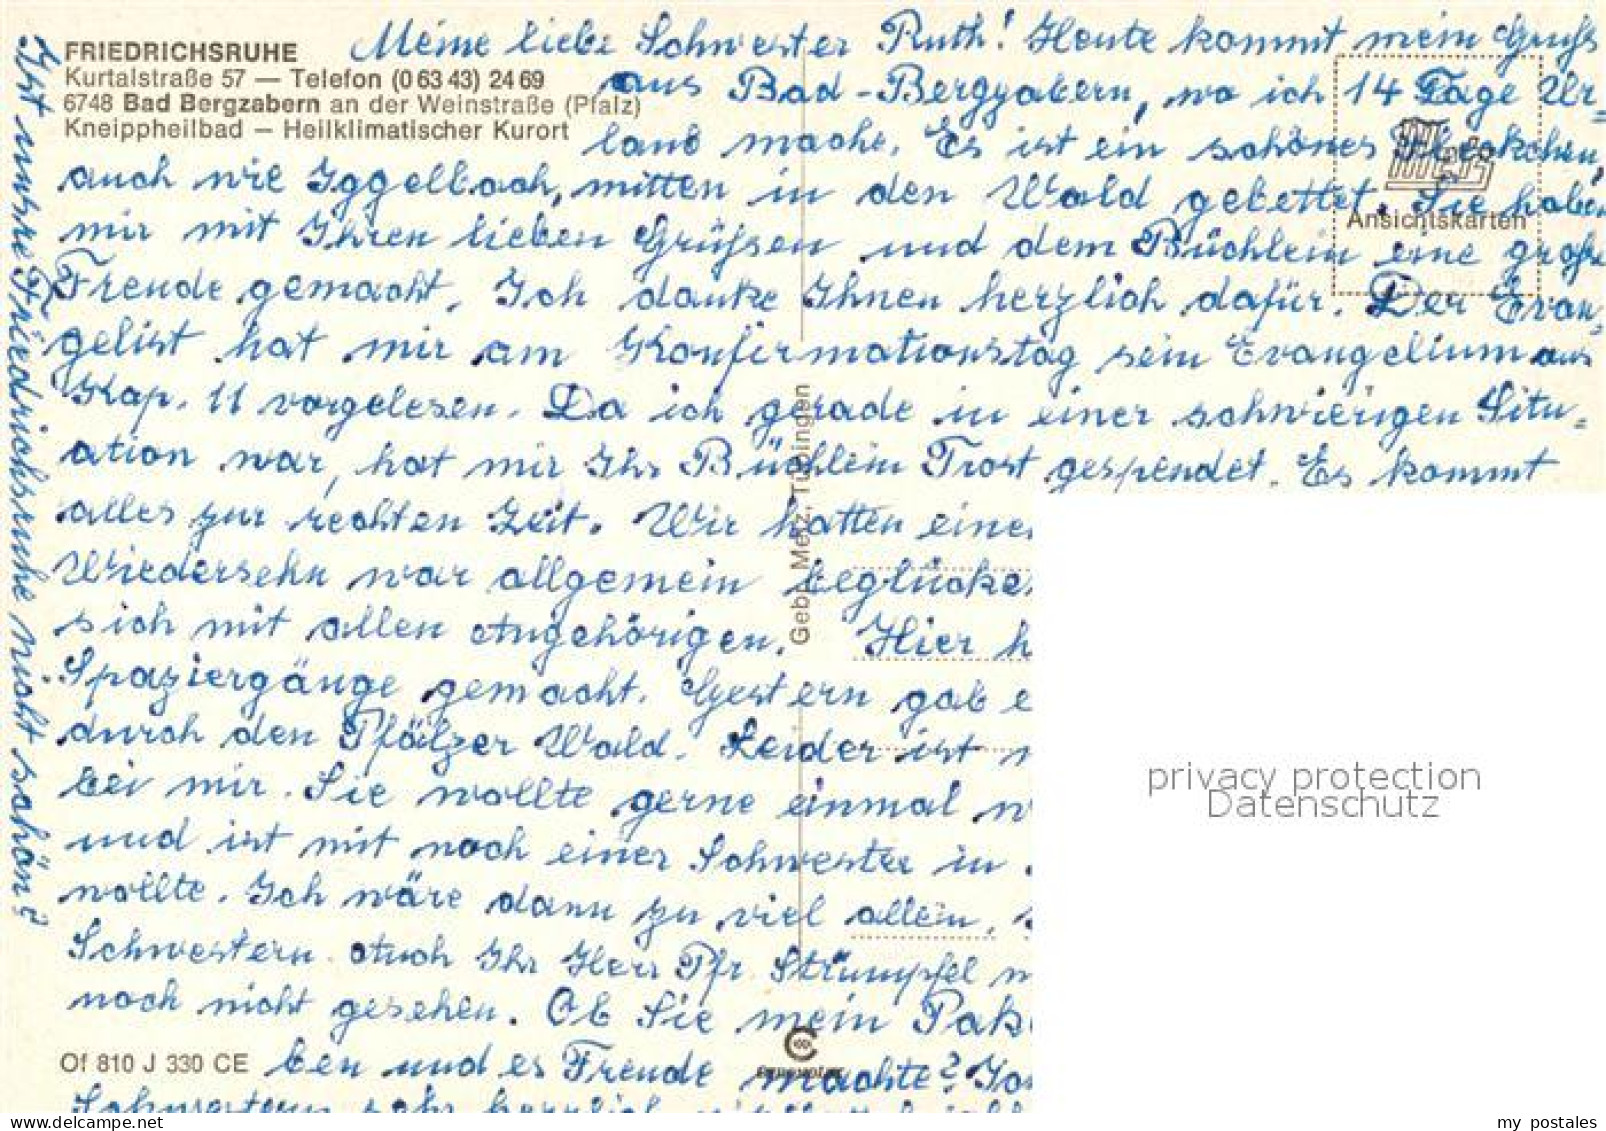 FRIEDRICHSRUHE
Kurtalstraße 57 — Telefon (0 63 43) 24 69
6748 Bad Bergzabern an der Weinstraße (Pfalz)
Kneippheilbad — Heilklimatischer Kurort
Meine liebe Schwester Ruth! Heute kommt mein Gruß
aus Bad-Bergzabern, wo ich 14 Tage Ur=
laub mache. Es ist ein schönes Fleckchen,
auch wie Iggelbach, mitten in den Wald gebettet. Sie haben
mir mit Ihren lieben Grüßen und dem Büchlein eine große
Freude gemacht. Ich danke Ihnen herzlich dafür. Der Evan=
gelist hat mir am Konfirmationstag sein Evangelium aus
Kap. 11 vorgelesen. Da ich gerade in einer schwierigen Situ=
ation war, hat mir Ihr Büchlein Trost gespendet. Es kommt
alles zur rechten Zeit. Wir hatten eine
Wiedersehn war allgemein beglücke
sich mit allen Angehörigen. Hier h
Spaziergänge gemacht. Gestern gab e
durch den Pfälzer Wald. Leider ist
bei mir. Sie wollte gerne einmal
und ist mit noch einer Schwester in
wollte. Ich wäre dann zu viel allein.
Schwestern. Auch Ihr Herr Pfr. Strümpfel
noch nicht gesehen. Ob Sie mein Pak
ben und es Freude machte? Ich
Schwestern sehr herzlich
Ist unsre Friedrichsruhe nicht schön?
Metz
Ansichtskarten
Gebr. Metz, Tübingen
Of 810 J 330 CE
privacy protection
Datenschutz
my postales